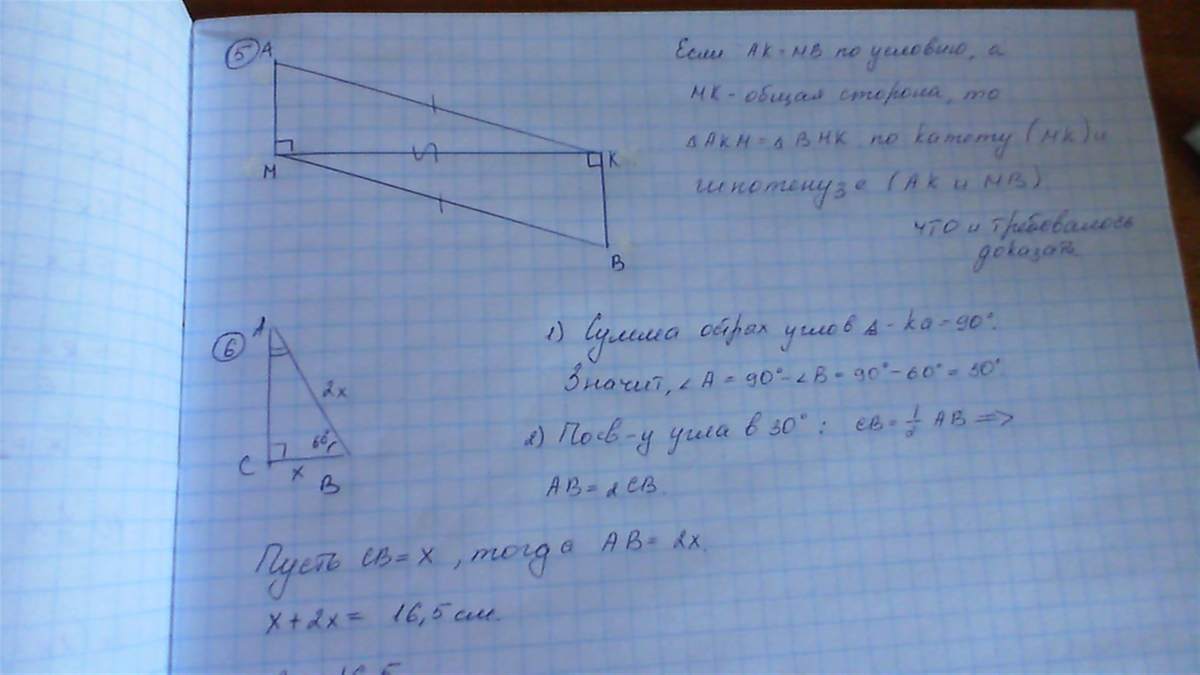 5
A
M
K
B
Если AK = MB по условию, а
MK - общая сторона, то
△AKM = △BMK по катету (MK) и
гипотенузе (AK и MB)
что и требовалось
доказать.
6
A
2x
60°
C
x
B
1) Сумма острых углов △-ка = 90°.
Значит, ∠A = 90° - ∠B = 90° - 60° = 30°.
2) По св-у угла в 30°: CB = 1/2 AB =>
AB = 2CB.
Пусть CB = x, тогда AB = 2x.
x + 2x = 16,5 см.